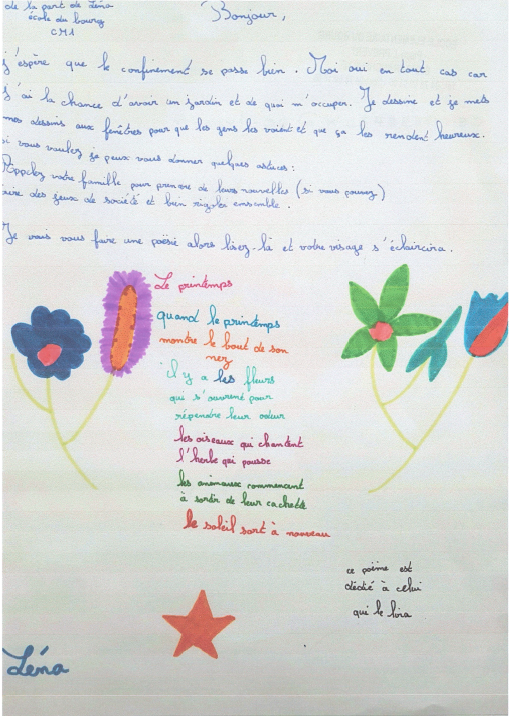 de la part de Léna
école du bourg
CM1
Bonjour,
j'espère que le confinement se passe bien. Moi oui en tout cas car
j'ai la chance d'avoir un jardin et de quoi m'occuper. Je dessine et je mets
mes dessins aux fenêtres pour que les gens les voient et que ça les rendent heureux.
si vous voulez je peux vous donner quelques astuces :
Appelez votre famille pour prendre de leurs nouvelles (si vous pouvez)
faire des jeux de société et bien rigoler ensemble.
Je vais vous faire une poésie alors lisez-là et votre visage s'éclaircira.
Le printemps
quand le printemps
montre le bout de son
nez
il y a les fleurs
qui s'ouvrent pour
répendre leur odeur
les oiseaux qui chantent
l'herbe qui pousse
les animaux commencent
à sortir de leur cachette
le soleil sort à nouveau
ce poème est
dédié à celui
qui le lira
Léna